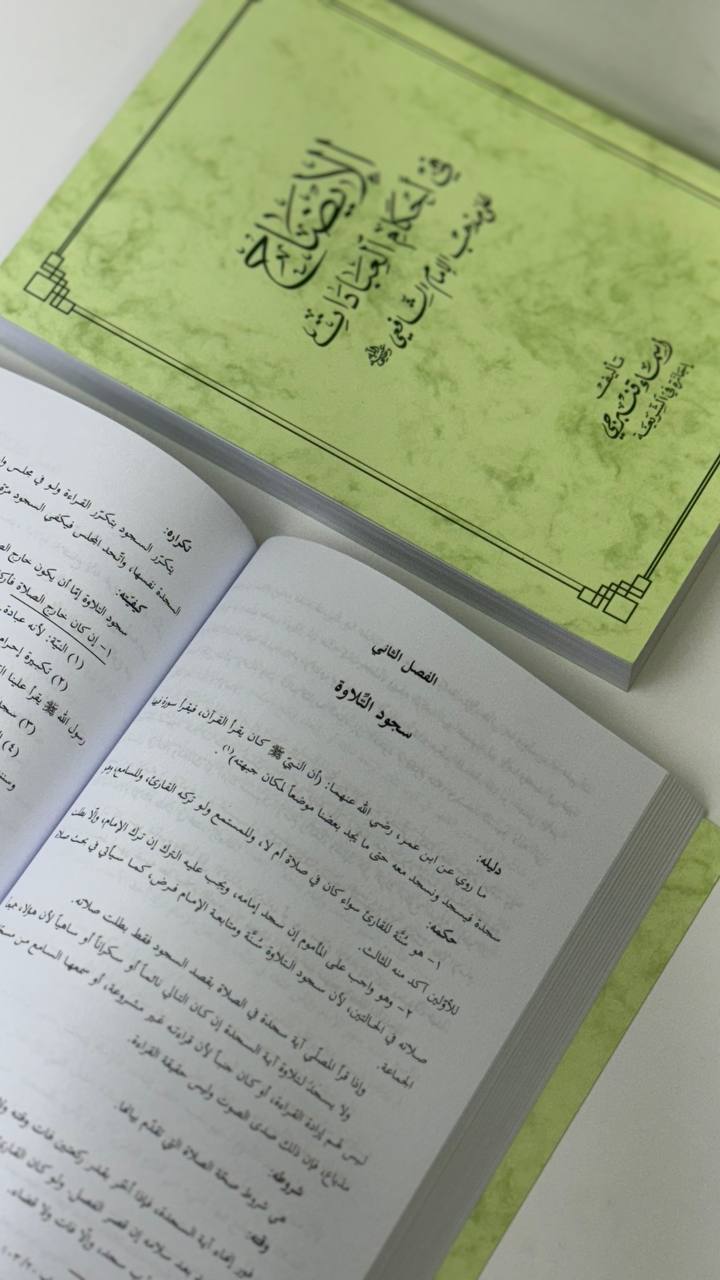 الإيضاح
في أحكام العبادات
على مذهب الإمام الشافعي
تأليف
إجازة في الشريعة
الفصل الثاني
سجود التلاوة
دليله:
ما روي عن ابن عمر، رضي الله عنهما: (أن النبيّ ﷺ كان يقرأ القرآن، فيقرأ سورة في
سجدة فيسجد ونسجد معه حتى ما يجد بعضنا موضعاً لمكان جبهته)(١).
حكمه:
١- هو سُنَّة للقارئ سواء كان في صلاة أم لا، وللمستمع ولو تركه القارئ، وللسامع وهو
للأوّلين آكد منه للثالث.
٢- وهو واجب على المأموم إن سجد إمامه، ويجب عليه الترك إن ترك الإمام، وإلّا بطلت
صلاته في الحالتين، لأن سجود التلاوة سُنَّة ومتابعة الإمام فرض، كما سيأتي في بحث صلاة
الجماعة.
وإذا قرأ المصلّي آية سجدة في الصلاة بقصد السجود فقط بطلت صلاته.
ولا يسجد لتلاوة آية السجدة إن كان التالي نائماً أو سكراناً أو ساهياً لأن هؤلاء
ليس لهم إرادة القراءة، أو كان جنباً لأن قراءته غير مشروعة، أو سمعها السامع من
مذياع، فإن ذلك صدى الصوت وليس حقيقة القراءة.
شروطه:
هي شروط صحّة الصلاة التي تقدّم بيانها.
وقته:
فور إنهاء آية السجدة، فإذا أخّر بقدر ركعتين فات وقته
بعد سلامه إن قصر الفصل، ولو كان القارئ
سجد، وإلّا فات ولا قضاء.
تكراره:
يتكرّر السجود بتكرّر القراءة ولو في مجلس
السجدة نفسها، واتّحد المجلس فيكفي السجود
كيفيّته:
سجود التلاوة إمّا أن يكون خارج
١- إن كان خارج الصلاة
(١) النيّة: لأنه عبادة
(٢) تكبيرة إحرام
رسول الله ﷺ يقرأ علينا
(٣)
(٤)